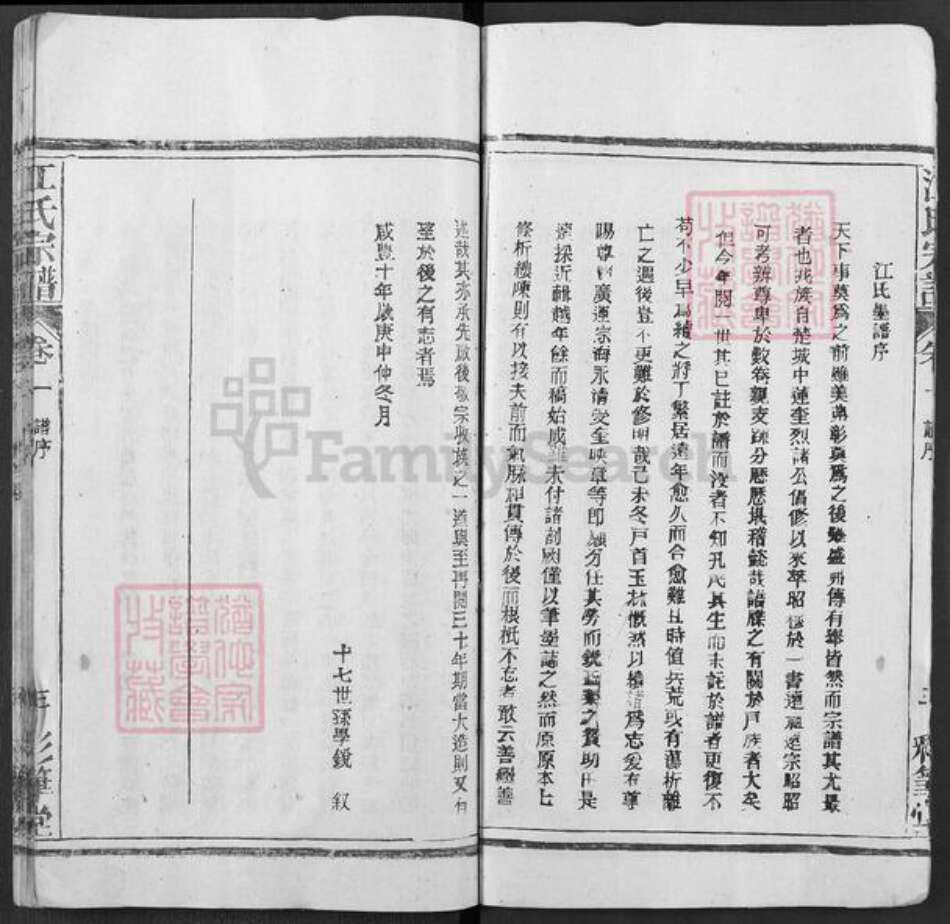 江氏墨譜序
天下事莫為之前雖美弗彰莫為之後雖盛弗傳有舉皆然而宗譜其尤最
者也我族自楚城中蓮奎烈諸公倡修以來萃昭穆於一書遠祖近宗昭昭
可考辨尊卑於數卷親支疎分歷歷堪稽懿哉譜牒之有關於戶族者大矣
但今年閱一世其已註於譜而沒者不知凡幾其生而未註於譜者更復不
苟不少早為續之將丁繁居遠年愈久而合愈難且時值兵荒或有蕩析離
亡之遇後豈不更難於修明哉己未冬戶首玉林慨然以續譜為志爰有尊
賜尊 廣運宗海永清受全映章等即願分任其勞而銳 之贊助由是
遠採近輯越年餘而稿始成雖未付諸剞劂僅以筆墨誌之然而原原本本
條析縷陳則有以接夫前而氣脉相貫傳於後而根柢不忘者敢云善繼善
述哉其亦承先啟後敬宗收族之一道與至再閱三十年期當大造則又有
望於後之有志者焉
咸豐十年歲庚申仲冬月
十七世孫學鏡 叙
江氏宗譜
卷一
譜序
三
彩筆堂
FamilySearch